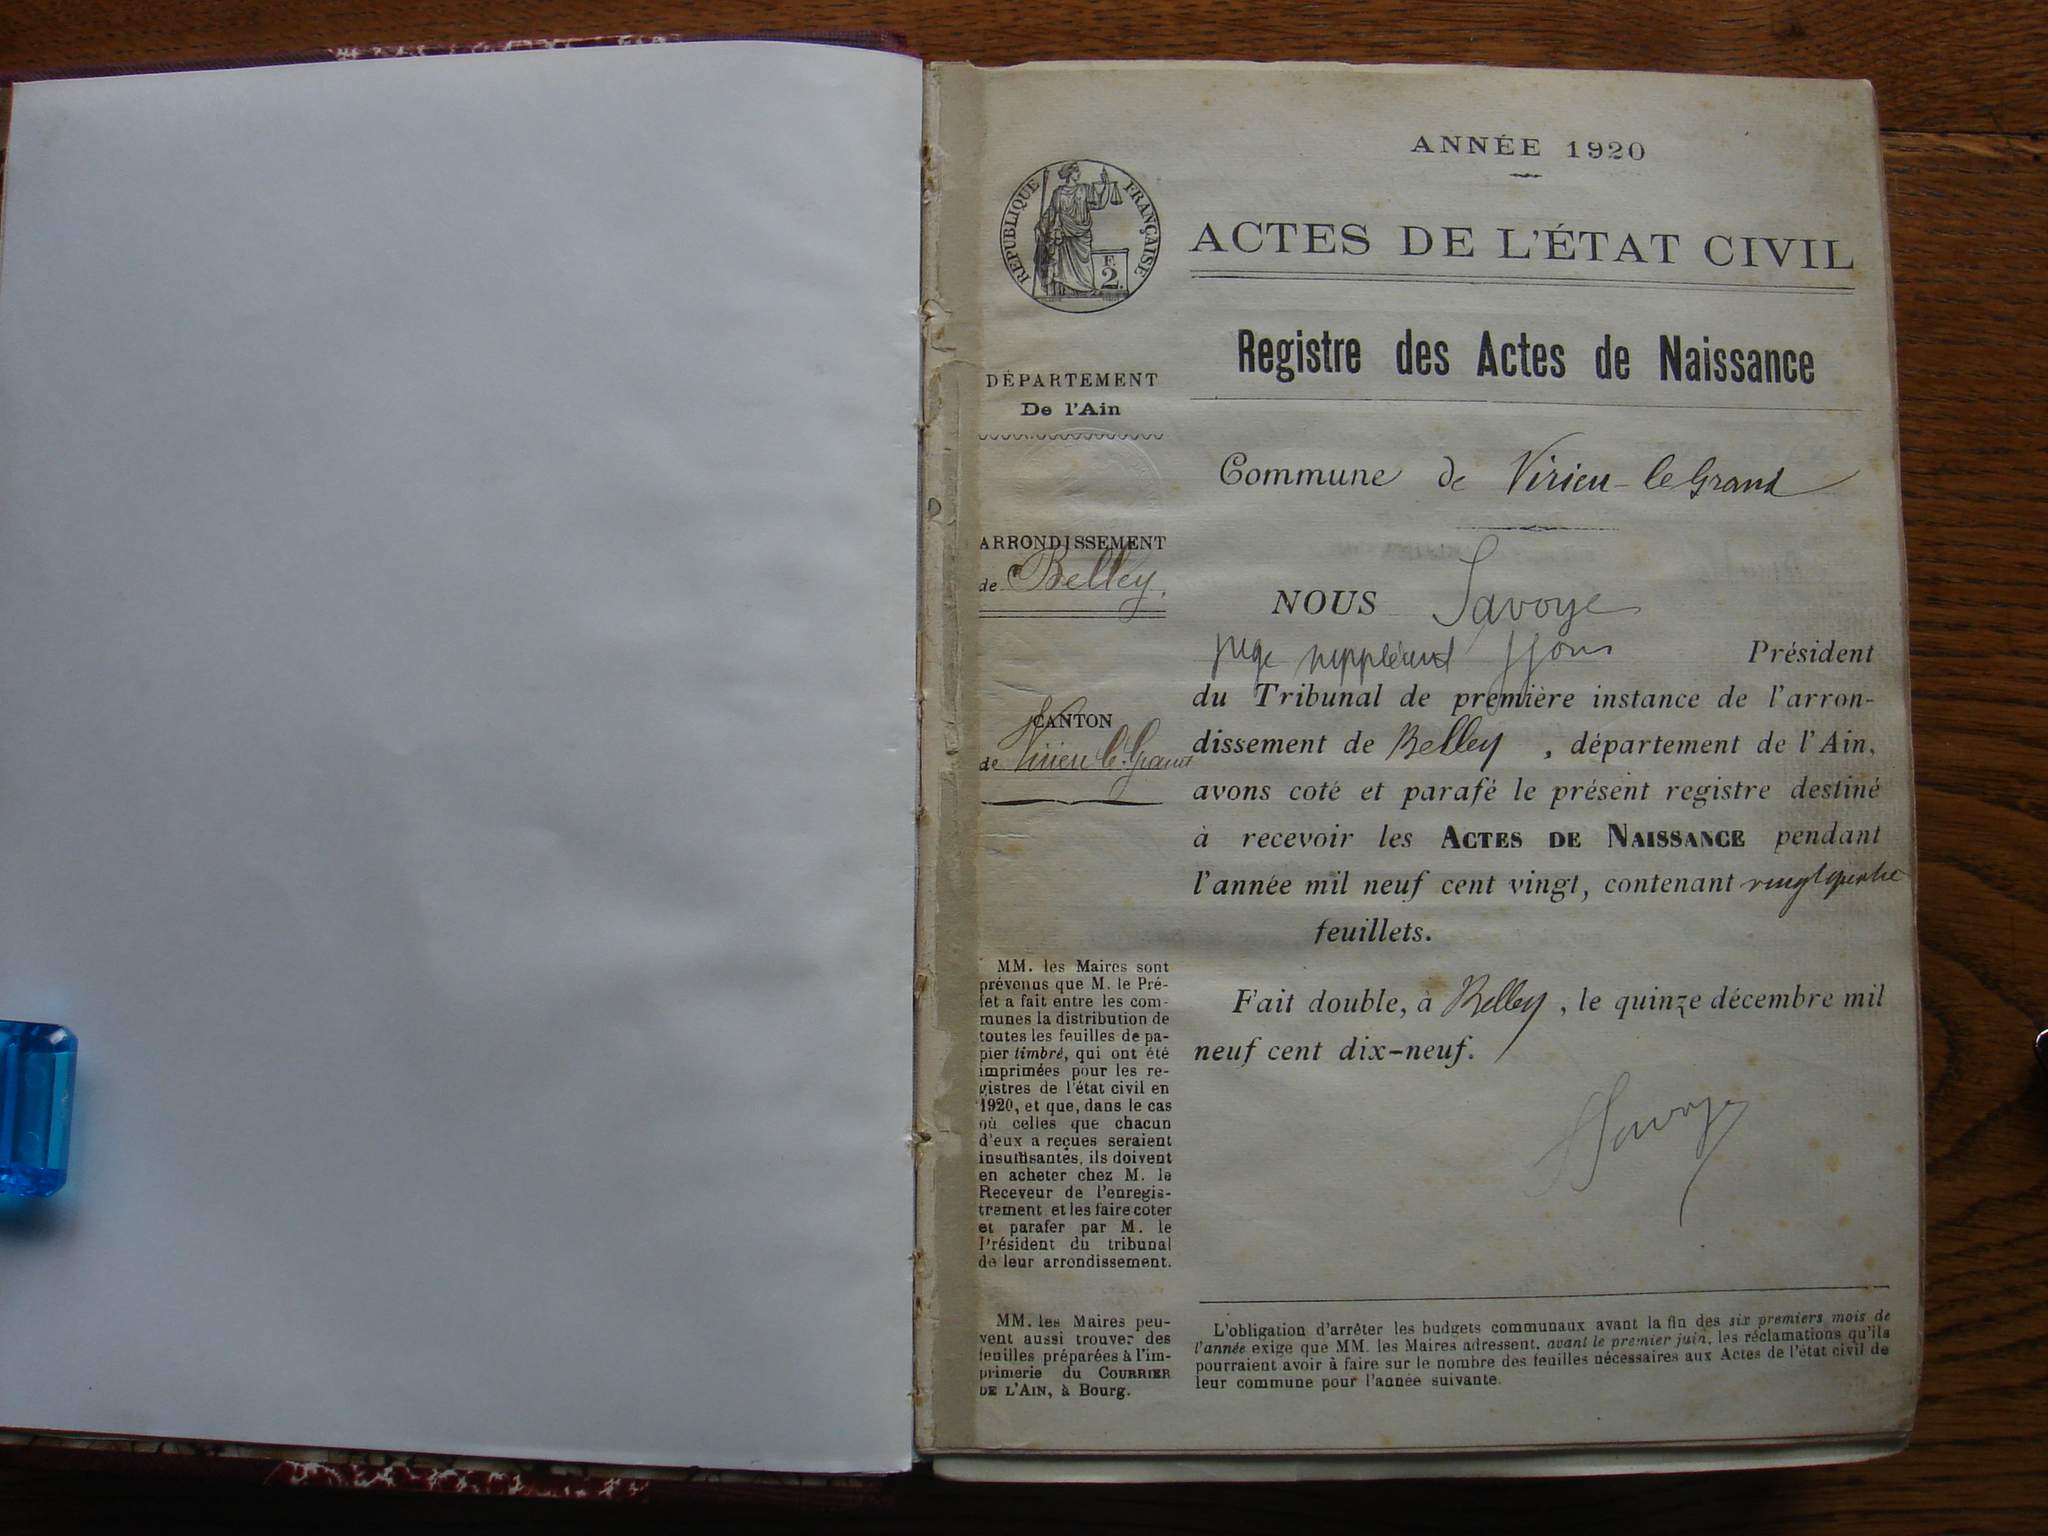 ANNÉE 1920
RÉPUBLIQUE FRANÇAISE
F.
2.
ACTES DE L'ÉTAT CIVIL
Registre des Actes de Naissance
DÉPARTEMENT
De l'Ain
Commune de Virieu-le Grand
ARRONDISSEMENT
de Belley.
CANTON
de Virieu le Grand
NOUS Savoye
juge suppléant Président
du Tribunal de première instance de l'arron-
dissement de Belley, département de l'Ain,
avons coté et parafé le présent registre destiné
à recevoir les ACTES DE NAISSANCE pendant
l'année mil neuf cent vingt, contenant vingt quatre
feuillets.
Fait double, à Belley, le quinze décembre mil
neuf cent dix-neuf.
Savoye
MM. les Maires sont
prévenus que M. le Pré-
fet a fait entre les com-
munes la distribution de
toutes les feuilles de pa-
pier timbré, qui ont été
imprimées pour les re-
gistres de l'état civil en
1920, et que, dans le cas
où celles que chacun
d'eux a reçues seraient
insuffisantes, ils doivent
en acheter chez M. le
Receveur de l'enregis-
trement et les faire coter
et parafer par M. le
Président du tribunal
de leur arrondissement.
MM. les Maires peu-
vent aussi trouver des
feuilles préparées à l'im-
primerie du COURRIER
DE L'AIN, à Bourg.
L'obligation d'arrêter les budgets communaux avant la fin des six premiers mois de
l'année exige que MM. les Maires adressent, avant le premier juin, les réclamations qu'ils
pourraient avoir à faire sur le nombre des feuilles nécessaires aux Actes de l'état civil de
leur commune pour l'année suivante.